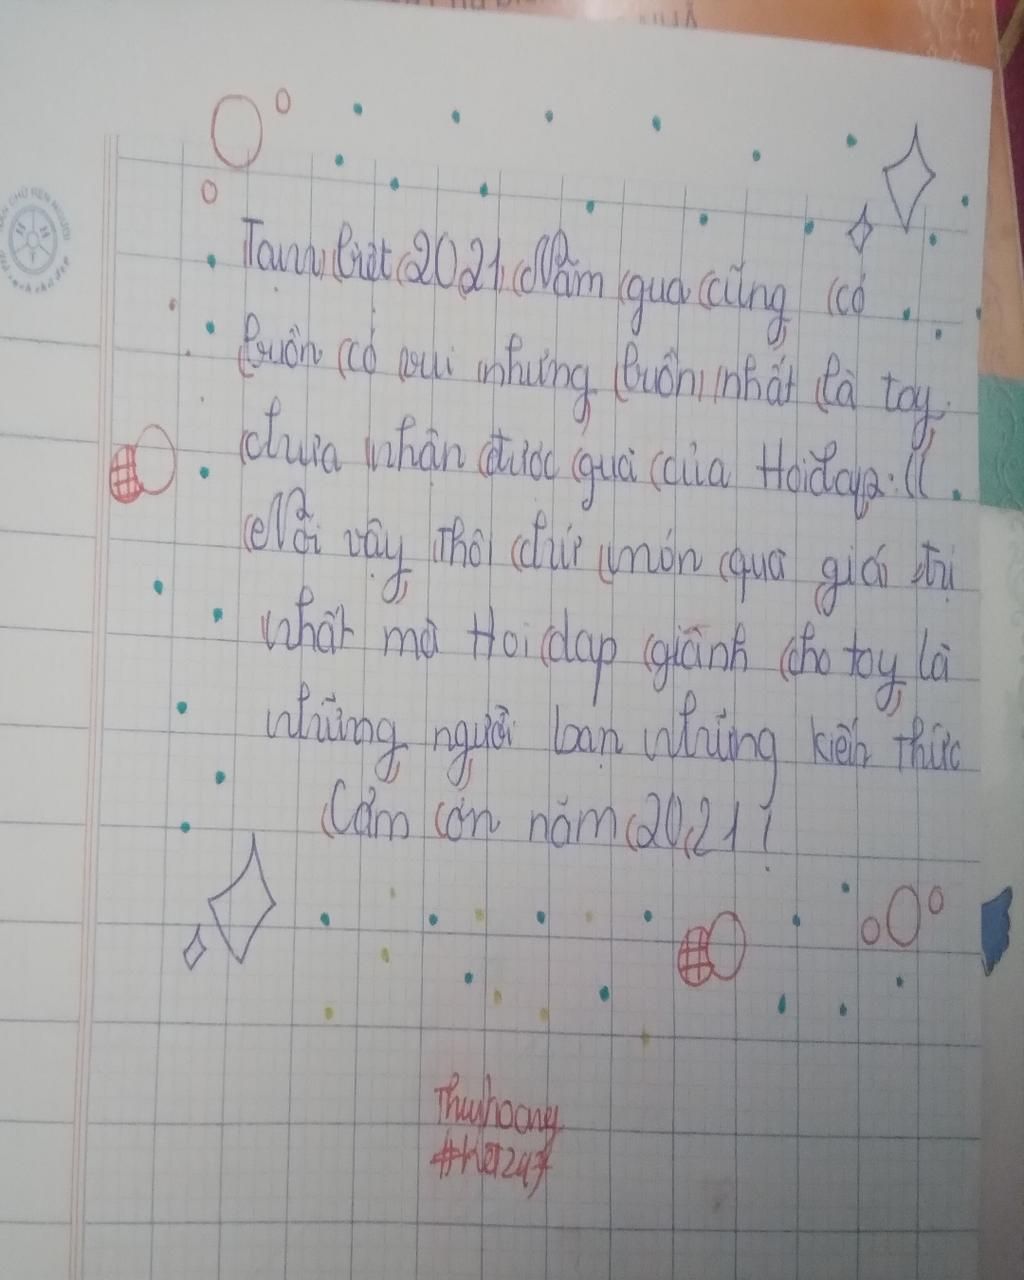 Tạm biệt 2021. Năm qua cũng có
buồn có vui nhưng buồn nhất là toy
chưa nhận được quà của Hoidap :((
Nói vậy thôi chứ món quà giá trị
nhất mà Hoidap giành cho toy là
những người bạn những kiến thức
Cảm ơn năm 2021!
Thuyhoang
#H